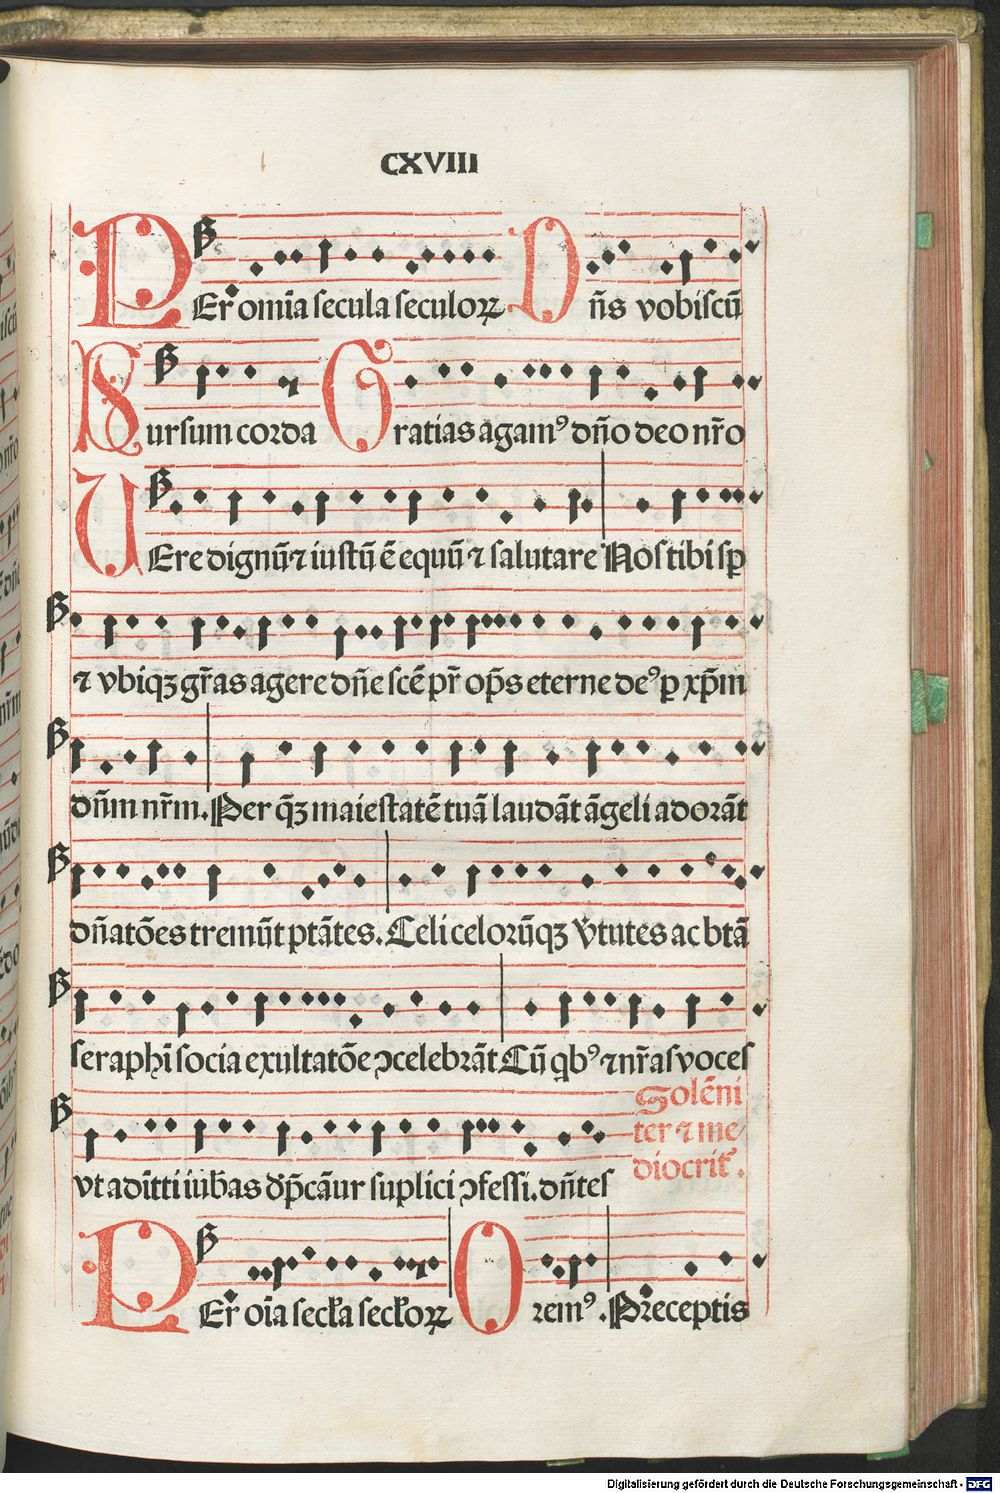 CXVIII
PEr omīa secula seculoꝝ Dn̄s vobiscū
Sursum corda Gratias agamꝰ dn̄o deo nr̄o
UEre dignū ⁊ iustū ē equū ⁊ salutare Nos tibi sꝑ
⁊ vbiqꝫ gr̄as agere dn̄e scē pr̄ op̄s eterne deꝰ ꝑ xp̄m
dn̄m nr̄m. Per q̄ꝫ maiestatē tuā laudāt āgeli adorāt
dn̄atōes tremūt ptātes. Celi celorūqꝫ v̄tutes ac btā
seraphī socia exultatōe ↄcelebrāt Cū qbꝰ ⁊ nr̄as voces
vt adītti iub̄as dp̄cāur suplici ↄfessi. dn̄tes
Solēni
ter ⁊ me
diocrit̄.
PEr oīa secła secłoꝝ Oremꝰ. Preceptis
Digitalisierung gefördert durch die Deutsche Forschungsgemeinschaft - DFG